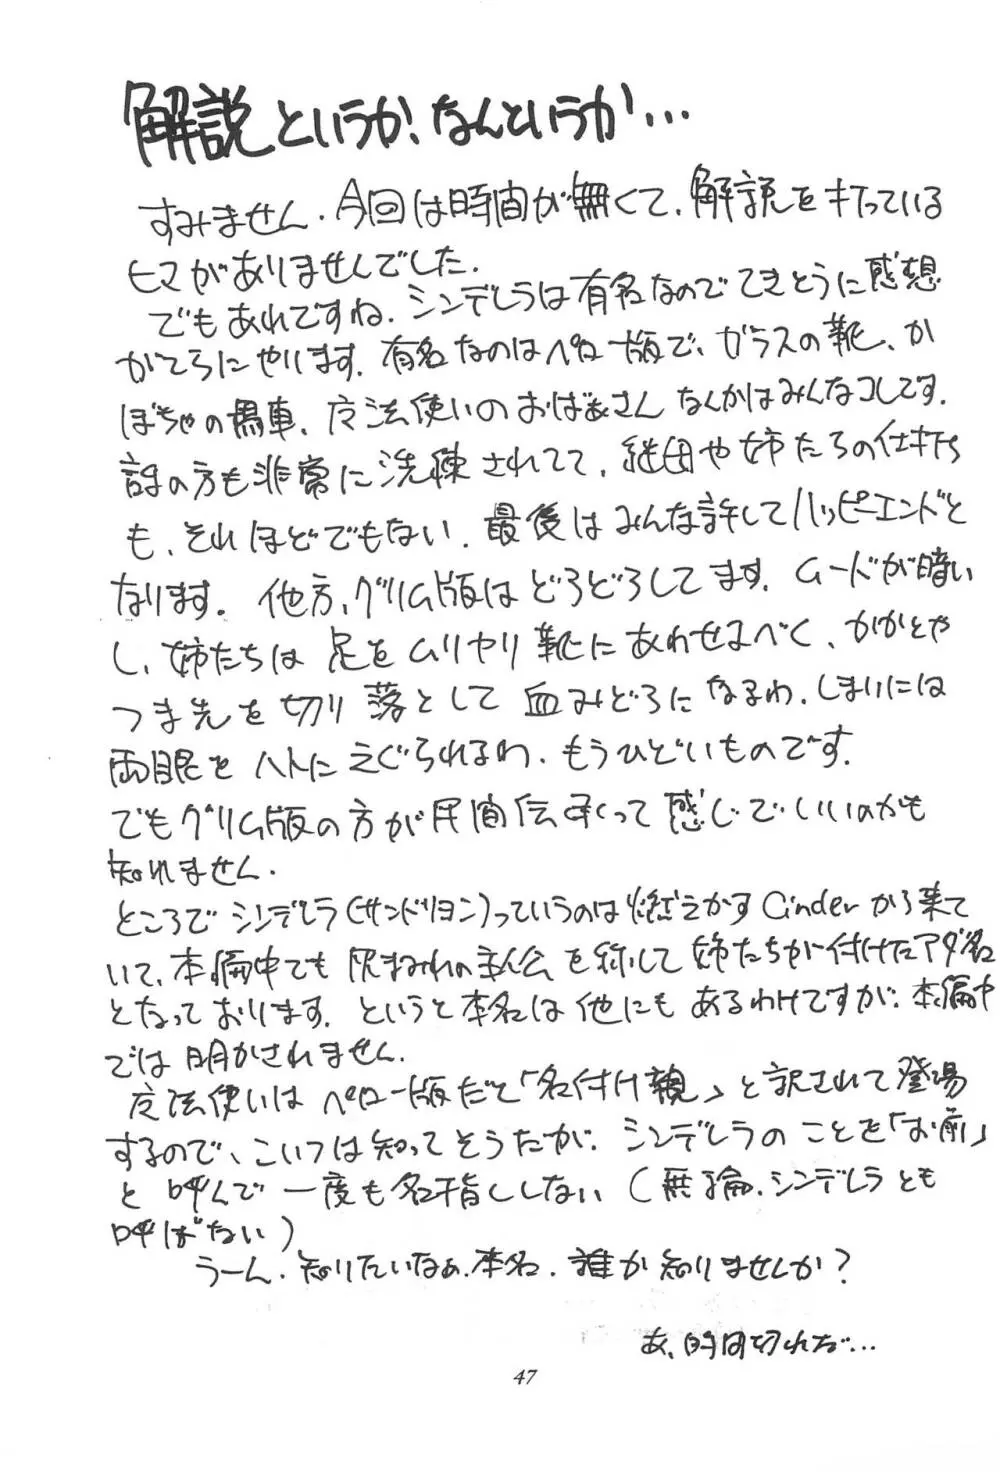 解説というか、なんというか…
すみません. 今回は時間が無くて、解説を打っている
ヒマがありませんでした.
でもあれですね. シンデレラは有名なのでてきとうに感想
がてらにやります. 有名なのはペロー版で、ガラスの靴、か
ぼちゃの馬車、魔法使いのおばあさんなんかはみんなコレです.
話の方も非常に洗練されてて、継母や姉たちの仕打ち
も、それほどでもない. 最後はみんな許してハッピーエンドと
なります. 他方、グリム版はどろどろしてます. ムードが暗い
し、姉たちは足をムリヤリ靴にあわせるべく、かかとや
つま先を切り落として血みどろになるわ. しまいには
両眼をハトにえぐられるわ. もうひどいものです.
でもグリム版の方が民間伝承って感じでいいのかも
知れません.
ところでシンデレラ(サンドリヨン)っていうのは燃えかすCinderから来て
いて、本編中でも灰まみれの主人公を称して姉たちが付けたアダ名
となっております. というと本名は他にもあるわけですが、本編中
では明かされません.
魔法使いはペロー版だと「名付け親」と訳されて登場
するので、こいつは知ってそうだが、シンデレラのことを「お前」
と呼んで一度も名指ししない(無論、シンデレラとも
呼ばない)
うーん. 知りたいなぁ. 本名. 誰か知りませんか?
あ、時間切れだ…
47